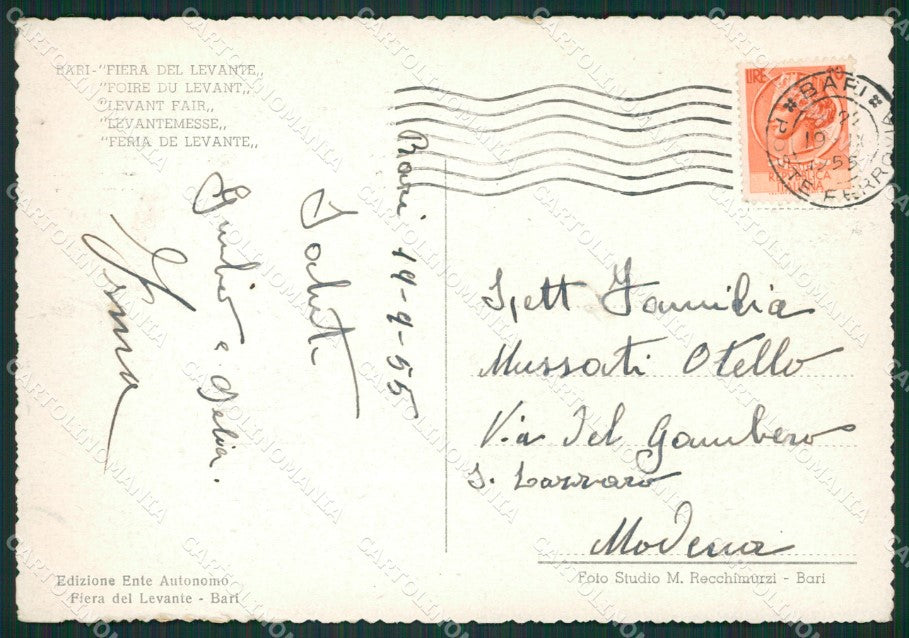 BARI - "FIERA DEL LEVANTE„
"FOIRE DU LEVANT„
"LEVANT FAIR„
"LEVANTEMESSE„
"FERIA DE LEVANTE„
LIRE 10
REPUBBLICA
ITALIANA
# BARI #
19
1955
POSTE FERROVIA
Bari 19-9-55
Salute
e Delia.
Irma
Spett Familia
Mussati Otello
Via Del Gambero
S. Lazzaro
Modena
Edizione Ente Autonomo
Fiera del Levante - Bari
Foto Studio M. Recchimurzi - Bari
CARTOLINOMANIA